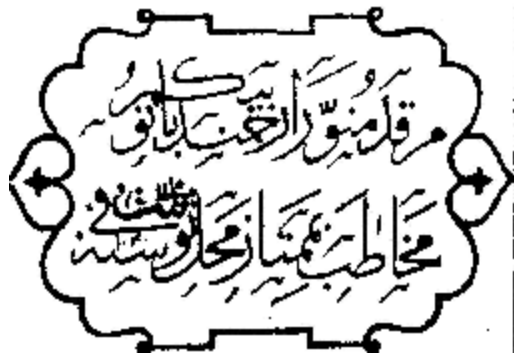 مرقد منور ارجمند بانو بیکم
مخاطب بممتاز محل توفیت فی سنه